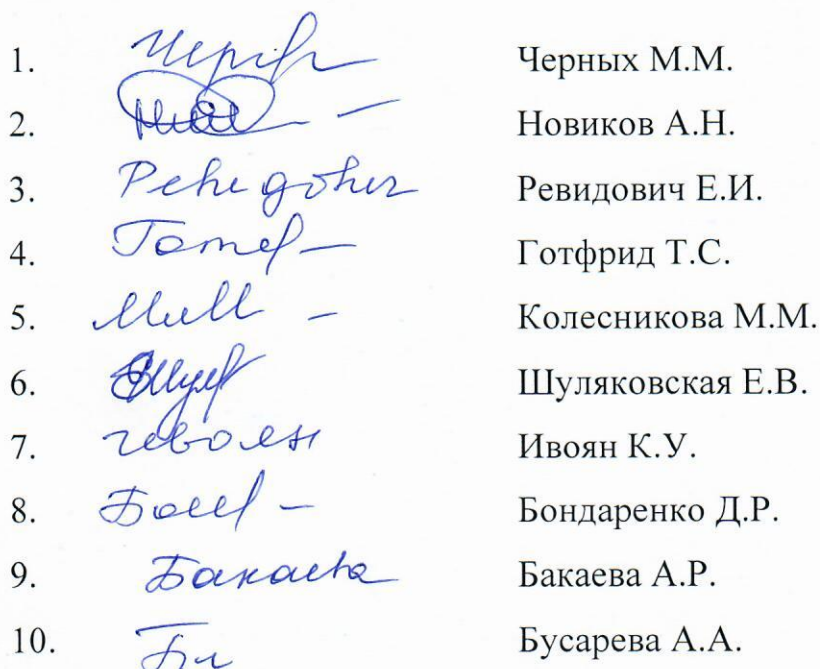 1. Черных М.М.
2. Новиков А.Н.
3. Ревидович Ревидович Е.И.
4. Готфрид Т.С.
5. Колесникова М.М.
6. Шуляковская Е.В.
7. Ивоян К.У.
8. Бондаренко Д.Р.
9. Бакаева Бакаева А.Р.
10. Бусарева А.А.